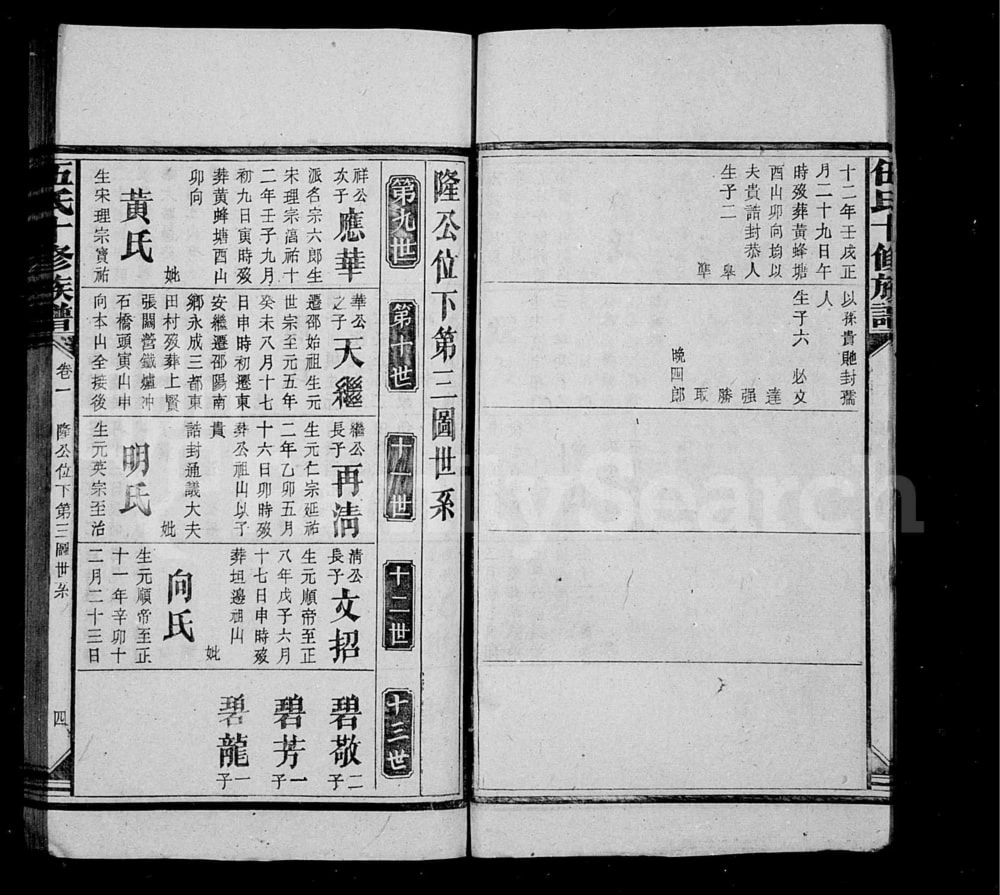 伍氏十修族譜
十二年壬戌正
月二十九日午
時歿葬黃蜂塘
酉山卯向均以
夫貴誥封恭人
生子二
以孫貴貤封孺
人
生子六 必文
達
强
勝
取
晚四郎
隆公位下第三圖世系
第九世
第十世
十一世
十二世
十三世
祥公
次子
應華
派名宗六郎生
宋理宗淳祐十
二年壬子九月
初九日寅時歿
葬黃蜂塘酉山
卯向
妣
黃氏
生宋理宗寶祐
華公
之子
天繼
遷邵始祖生元
世宗至元五年
癸未八月十七
日申時初遷東
安繼遷邵陽南
鄉永成三都東
田村歿葬上賢
張闗舊鐵爐冲
石橋頭寅山申
向本山全接後
繼公
長子
再清
生元仁宗延祐
二年乙卯五月
十六日卯時歿
葬公祖山以子
貴
誥封通議大夫
妣
明氏
生元英宗至治
清公
長子
文招
生元順帝至正
八年戊子六月
十七日申時歿
葬坦邊祖山
妣
向氏
生元順帝至正
十一年辛卯十
二月二十三日
碧敬 二子
碧芳 一子
碧龍 一子
伍氏十修族譜
卷一
隆公位下第三圖世系
四
FamilySearch